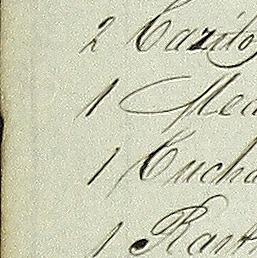 2 Cazito
1 Mea
1 Cucha
1 Rart